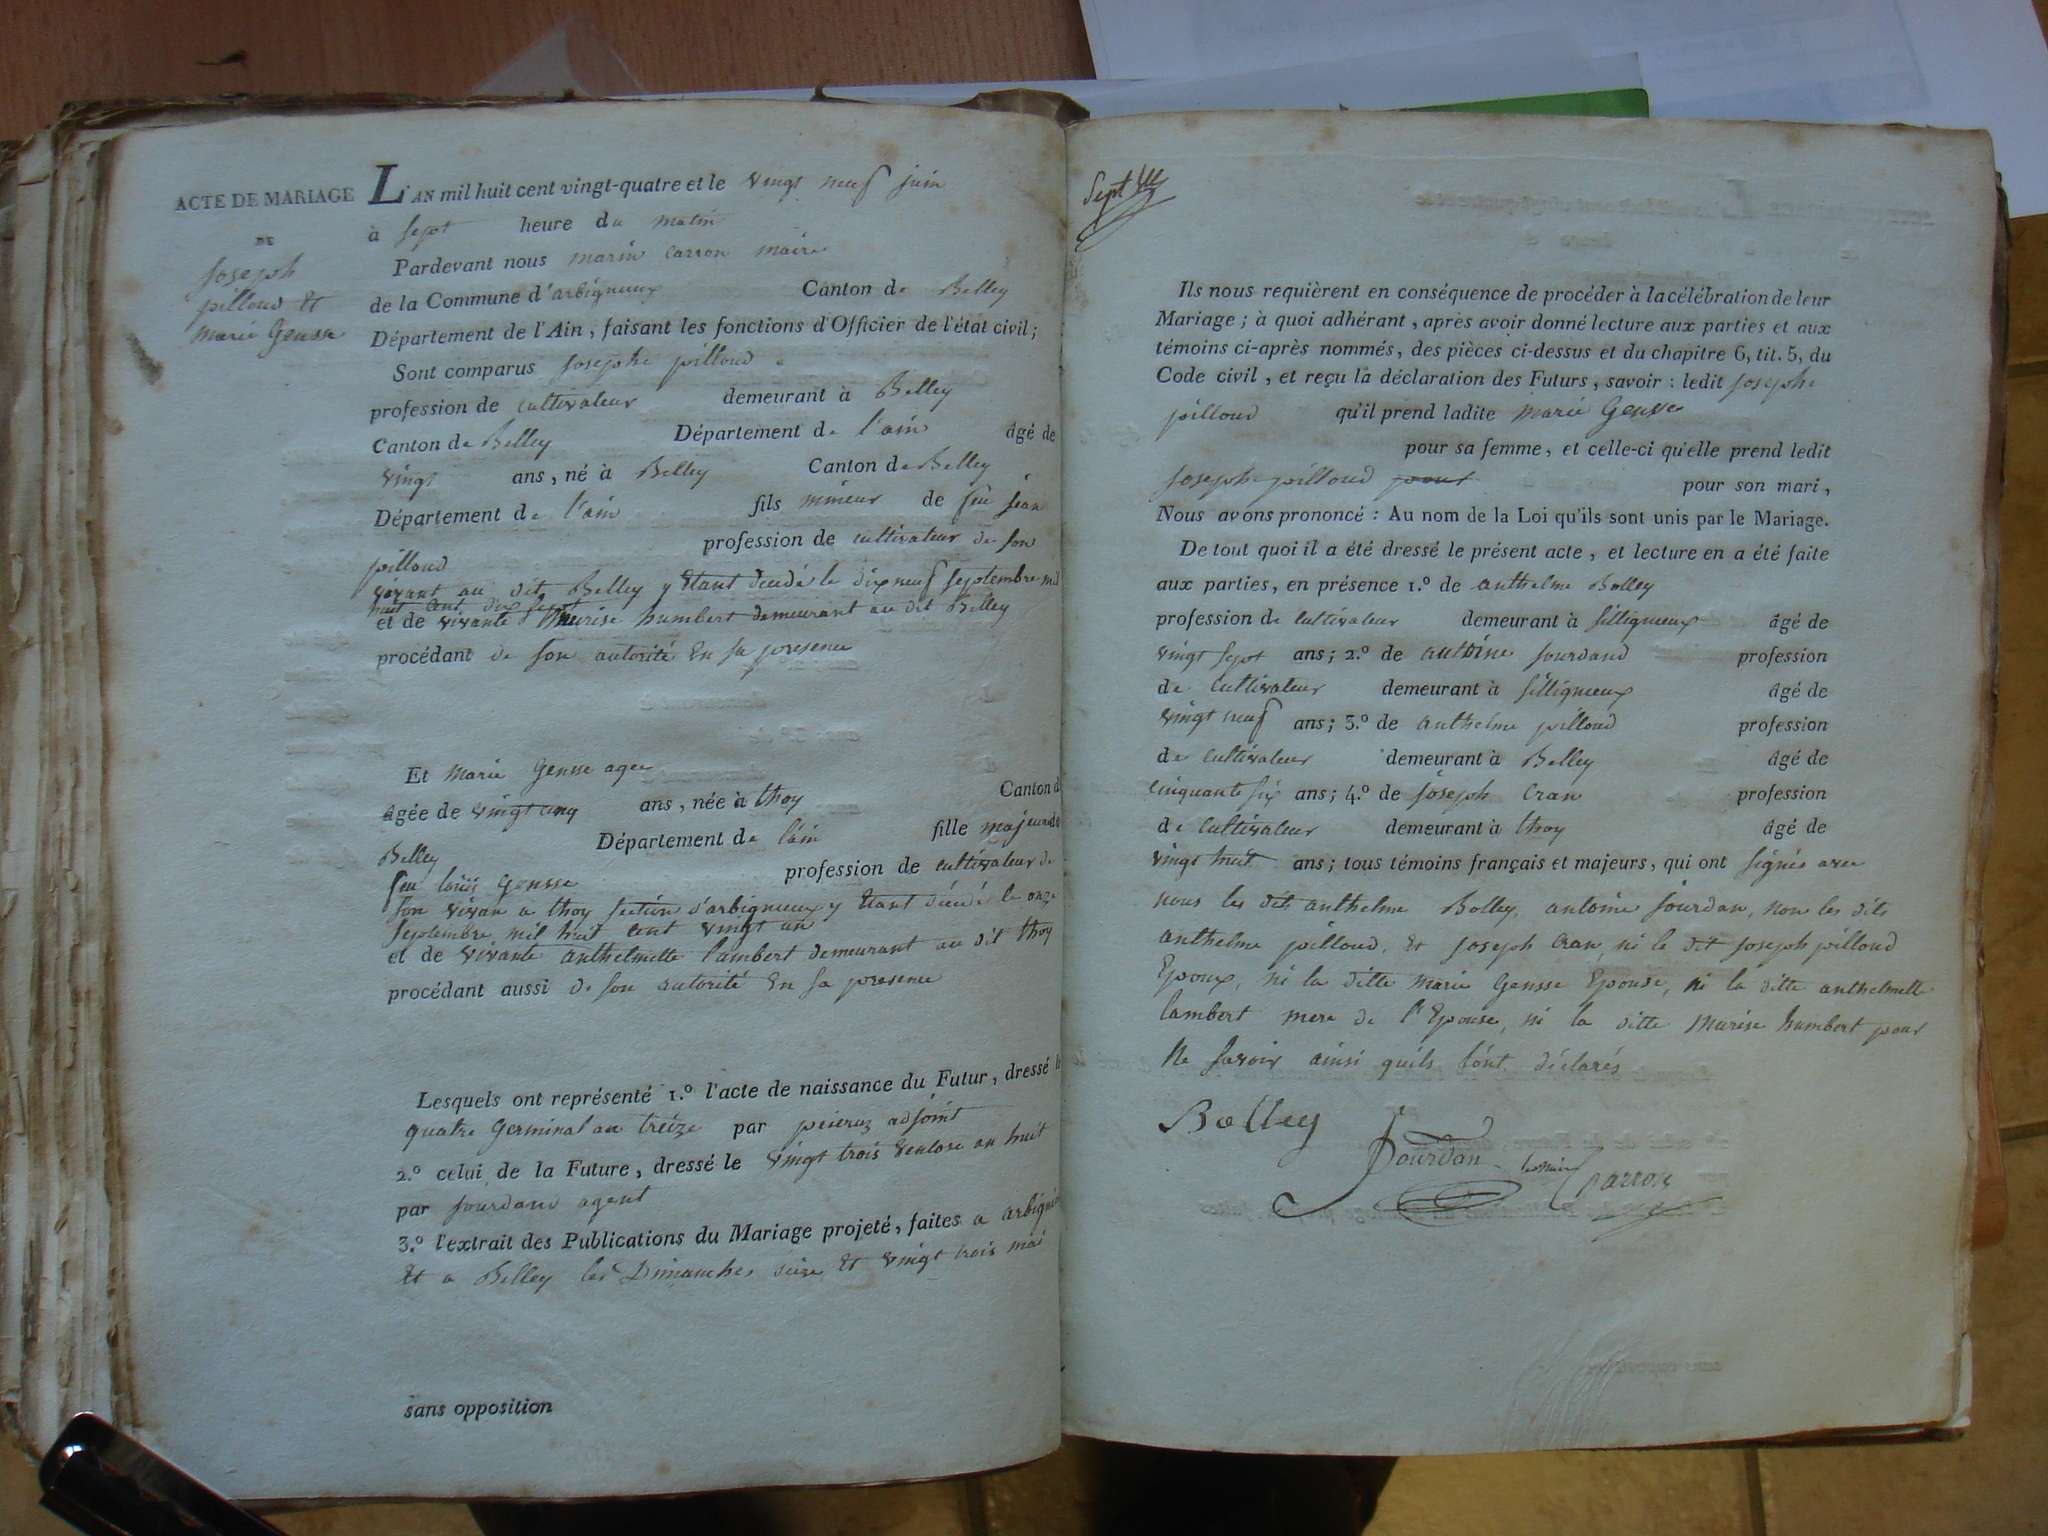 ACTE DE MARIAGE
DE
Joseph
pilloud Et
Marie Gensse
L'AN mil huit cent vingt-quatre et le vingt neuf juin
à sept heure du matin
Pardevant nous marin carron maire
de la Commune d'arbigneux Canton de Belley
Département de l'Ain, faisant les fonctions d'Officier de l'état civil;
Sont comparus Josephe pilloud
profession de cultivateur demeurant à Belley
Canton de Belley Département de l'ain âgé de
vingt ans, né à Belley Canton de Belley
Département de l'ain fils mineur de feu jean
pilloud profession de cultivateur de son
vivant au dit Belley y Etant décédé le dix neuf septembre mil
huit cent dix sept
et de vivante Murise humbert demeurant au dit Belley
procédant de son autorité En sa presence
Et Marie Gensse agee
âgée de vingt cinq ans, née à thoy Canton de
Belley Département de l'ain fille majeure de
feu loüis Gensse profession de cultivateur de
son vivan a thoy section d'arbigneux y Etant décédé le onze
septembre mil huit cent vingt un
et de vivante anthelmette lambert demeurant au dit thoy
procédant aussi de son autorité En sa presence
Lesquels ont représenté 1.º l'acte de naissance du Futur, dressé le
quatre Germinal an treize par peieruz adjoint
2.º celui de la Future, dressé le vingt trois ventose an huit
par Jourdand agent
3.º l'extrait des Publications du Mariage projeté, faites a arbignieu
Et a Belley les Dimanches seize Et vingt trois mai
sans opposition
Sept
Ils nous requièrent en conséquence de procéder à la célébration de leur
Mariage; à quoi adhérant, après avoir donné lecture aux parties et aux
témoins ci-après nommés, des pièces ci-dessus et du chapitre 6, tit. 5, du
Code civil, et reçu la déclaration des Futurs, savoir: ledit Josephe
pilloud qu'il prend ladite Marie Gensse
pour sa femme, et celle-ci qu'elle prend ledit
Joseph pilloud pour pour son mari,
Nous avons prononcé: Au nom de la Loi qu'ils sont unis par le Mariage.
De tout quoi il a été dressé le présent acte, et lecture en a été faite
aux parties, en présence 1.º de anthelme Bolley
profession de cultivateur demeurant à silligneux âgé de
vingt sept ans; 2.º de antoine Jourdand profession
de cultivateur demeurant à silligneux âgé de
vingt neuf ans; 3.º de anthelme pilloud profession
de cultivateur demeurant à Belley âgé de
cinquante six ans; 4.º de joseph Cran profession
de cultivateur demeurant à thoy âgé de
vingt huit ans; tous témoins français et majeurs, qui ont signés avec
nous les dits anthelme Bolley, antoine Jourdan, non les dits
anthelme pilloud, Et Joseph Cran, ni le dit Joseph pilloud
Epoux, ni la ditte Marie Gensse Epouse, ni la ditte anthelmette
lambert mere de l'Epouse, ni la ditte Murise humbert pour
Ne savoir ainsi quils sont déclarés
Bolley
Jourdan
Carron